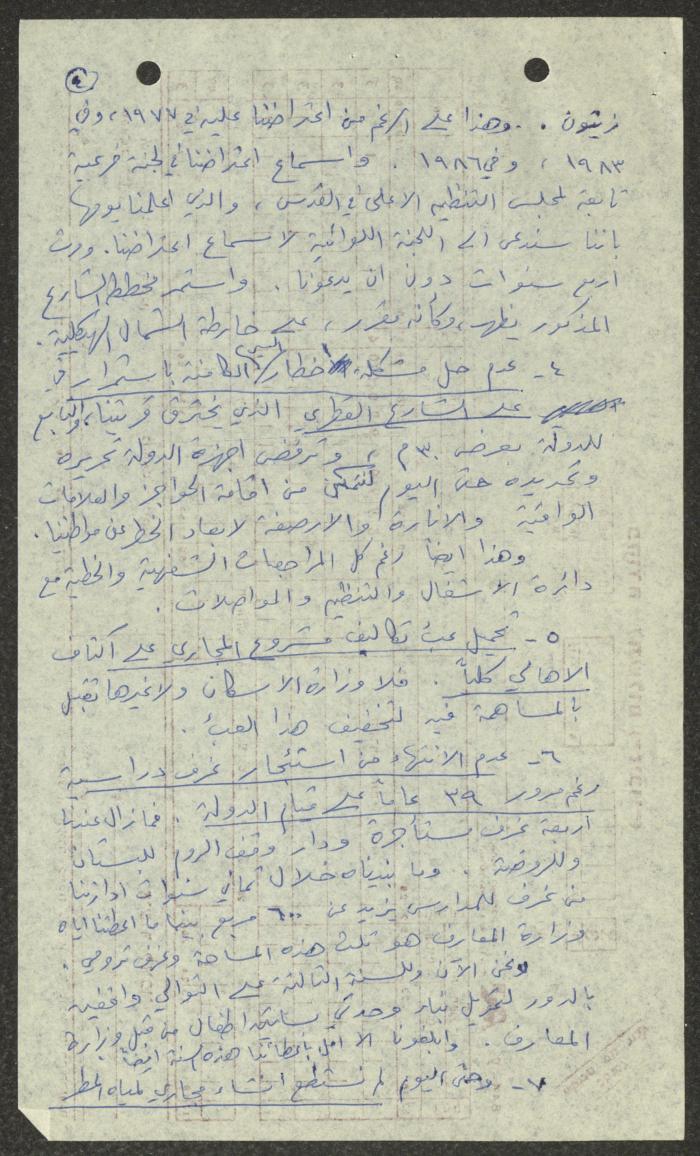 ٤
زيتون . وهذا على الرغم من اعتراضنا عليه في ١٩٧٧، وفي
١٩٨٣ ، وفي ١٩٨٦ . واسماع اعتراضنا في لجنة فرعية
تابعة لمجلس التنظيم الاعلى في القدس ، والذي اعلمنا يومها
باننا سندعى الى اللجنة اللوائية لاسماع اعتراضنا. ومرت
اربع سنوات دون ان يدعونا . واستمر مخطط الشارع
المذكور يظهر، وكأنه مقرر، على خارطة الشمال الهيكلية.
٤- عدم حل مشكلة اخطار السير الكامنة باستمرار في
على الشارع القطري الذي يخترق قريتنا، والتابع
للدولة بعرض ٣٠ م ، وترفض اجهزة الدولة تحريره
وتحديده حتى اليوم لنتمكن من اقامة الحواجز والعلامات
الواقية والانارة والارصفة لابعاد الخطر عن مواطنينا.
وهذا ايضاً رغم كل المراجعات الشفهية والخطية مع
دائرة الاشغال والتنظيم والمواصلات .
٥- تحميل عبء تكاليف مشروع المجاري على اكتاف
الاهالي كلياً . فلا وزارة الاسكان ولا غيرها تقبل
بالمساهمة فيه لتخفيف هذا العبء .
٦- عدم الانتهاء من استئجار غرف دراسية
رغم مرور ٣٩ عاماً على قيام الدولة . فما زال عندنا
اربعة غرف مستأجرة ودار وقف الروم للبستان
وللروضة . وما بنيناه خلال ثماني سنوات ادارتنا
من غرف للمدارس يزيد عن ٦٠٠ م مربع بينما ما اعطتنا اياه
وزارة المعارف هو ثلث هذه المساحة وغرف ترومي .
ونحن الآن وللسنة الثالثة على التوالي واقفين
بالدور لتمويل بناء وحدتي بساتين اطفال من قبل وزارة
المعارف . وابلغونا الا امل باعطائنا هذه السنة ايضاً
٧- وحتى اليوم لم نستطع انشاء مجاري لمياه المطر